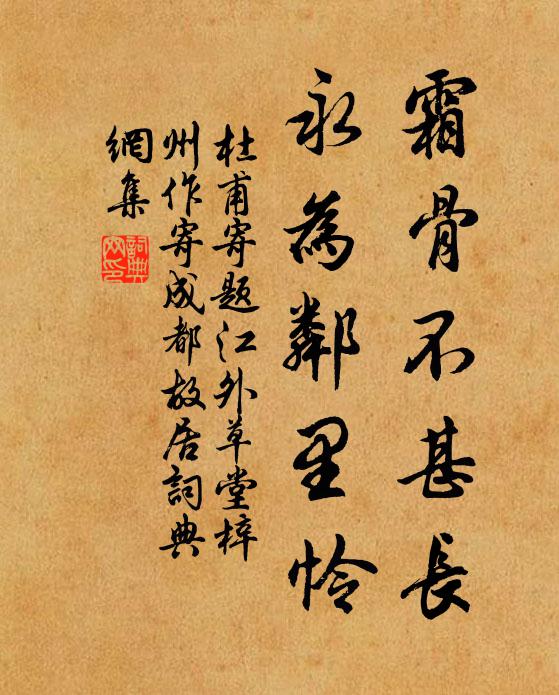 霜骨不甚長
永為鄰里怜
杜甫寄題江外草堂梓
州作寄成都故居詞典
網集
詞典
网印